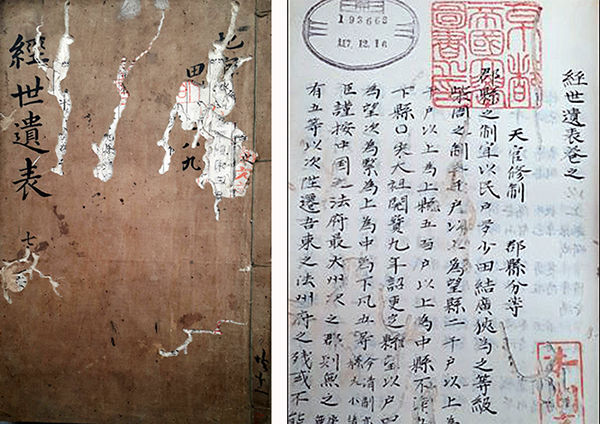 經世遺表
七
田
八九
193668
12.16
經世遺表卷之
天官修制 郡縣分等
郡縣之制宜以民戶多少田結廣狹為之等級
柴周之制三千戶以上為望縣二千戶以上為
千戶以上為上縣五百戶以上為中縣不滿
下縣○宋太祖開寶九年詔更定縣望以戶四
為望次為緊為上為中為下凡五等 今清制亦
縣大小諸
臣謹按中国之法府最大州次之郡則無之
有五等以次陞遷吾東之法州府之残或不能